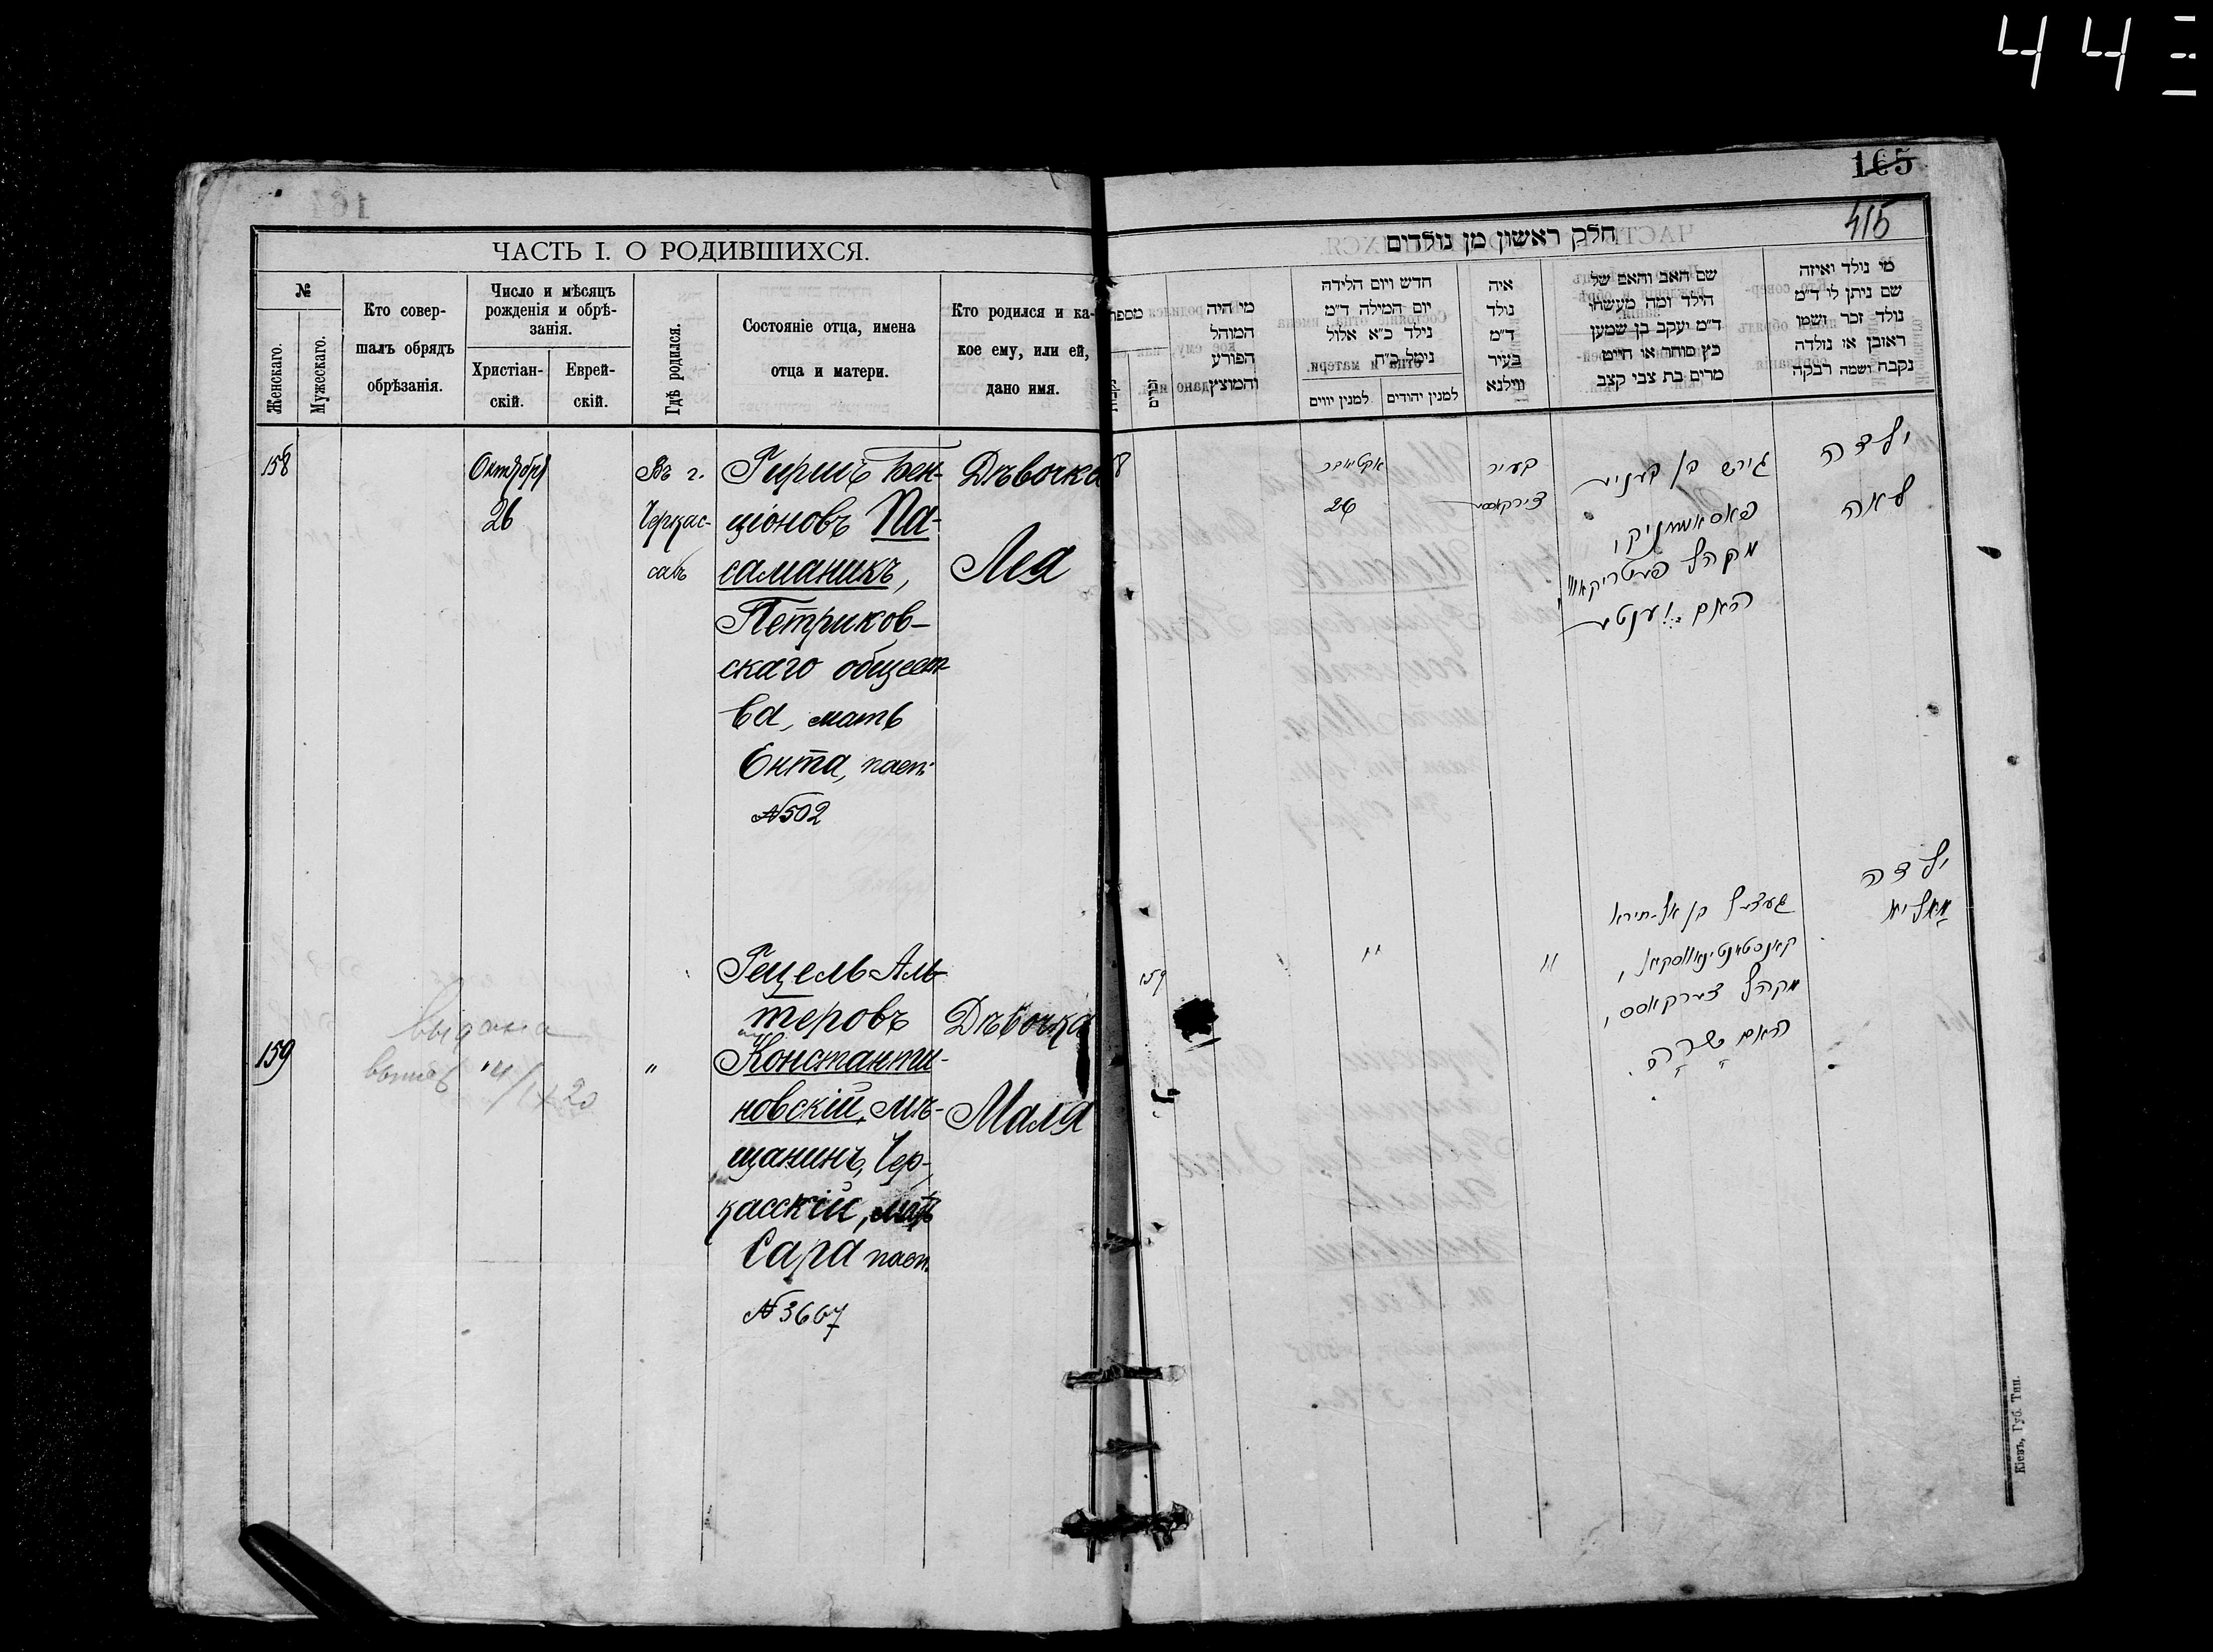 44
165
415
ЧАСТЬ I. О РОДИВШИХСЯ.
№
Женскаго.
Мужескаго.
Кто совер-
шалъ обрядъ
обрѣзанія.
Число и мѣсяцъ
рожденія и обрѣ-
занія.
Христіан-
скій.
Еврей-
скій.
Гдѣ родился.
Состояніе отца, имена
отца и матери.
Кто родился и ка-
кое ему, или ей,
дано имя.
158
Октября
26
Въ г.
Черкас-
сахъ
Гиршъ Бен-
ціоновъ Па-
саманикъ,
Петриков-
скаго общест-
ва, мать
Ента, пасп.
№502
Дѣвочка
Лея
159
выдана
4/IX 20
"
"
Гецель Аль-
теровъ
Константи-
новскій, мѣ-
щанинъ Чер-
касскій, мать
Сара пасп.
№3667
Дѣвочка
Маля
חלק ראשון מן נולדים
מספר
מי היה
המוהל
הפורע
והמוצץ
חדש ויום הלידה
יום המילה ד"מ
נולד כ"א אלול
נימל כ"ח
למנין יווים
למנין יהודים
איה
נולד
ד"מ
בעיר
ווילנא
שם האב והאם של
הילד ומה מעשהו
ד"מ יעקב בן שמעון
כץ סוחר או חייט
מרים בת צבי קצב
מי נולד ואיזה
שם ניתן לו ד"מ
נולד זכר ושמו
ראובן או נולדה
נקבה ושמה רבקה
8
אקטיאבר
26
בעיר
צירקאסי
גירש בן
מקהל פעטריקאוו
האם יענטע
ילדה
לאה
159
"
"
געצל בן אלתירא
קאנסטאנטינאווסקאי,
מקהל צערקאסס,
האם שרה.
ילדה
מאליא
Кіевъ, Губ. Тип.